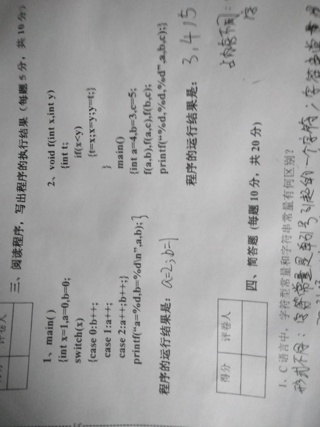 评卷人
三、阅读程序，写出程序的执行结果（每题 5 分，共 10 分）
1、main( )
{int x=1,a=0,b=0;
switch(x)
{case 0:b++;
case 1:a++;
case 2:a++;b++;}
printf("a=%d,b=%d\n",a,b);}
程序的运行结果是：a=2,b=1
2、void f(int x,int y)
{int t;
if(x<y)
{t=x;x=y;y=t;}
}
main()
{int a=4,b=3,c=5;
f(a,b),f(a,c),f(b,c);
printf("%d,%d,%d",a,b,c);}
程序的运行结果是：3,4,5
得分 评卷人
四、简答题（每题 10 分，共 20 分）
1、C 语言中，字符型常量和字符串常量有何区别？
形式不同：字符常量是单引号引起的一个字符；字符串常量
占内存不同：